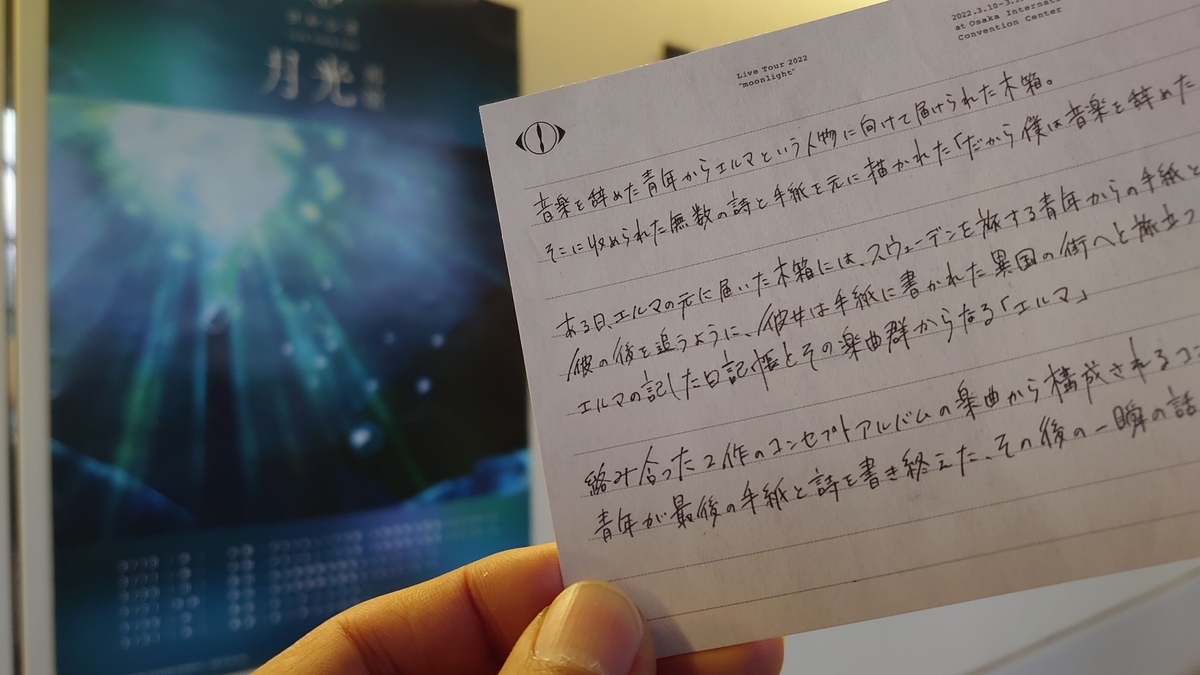 月光
Live Tour 2022
"moonlight"
2022.3.10-3.
at Osaka Internati
Convention Center
音楽を辞めた青年からエルマという人物に向けて届けられた木箱。
そこに収められた無数の詩と手紙を元に描かれた「だから僕は音楽を辞めた
ある日、エルマの元に届いた木箱には、スウェーデンを旅する青年からの手紙と
彼の後を追うように、彼女は手紙に書かれた異国の街へと旅立つ
エルマの記した日記帳とその楽曲群からなる「エルマ」
絡み合った2作のコンセプトアルバムの楽曲から構成されるコン
青年が最後の手紙と詩を書き終えた、その後の一瞬の話